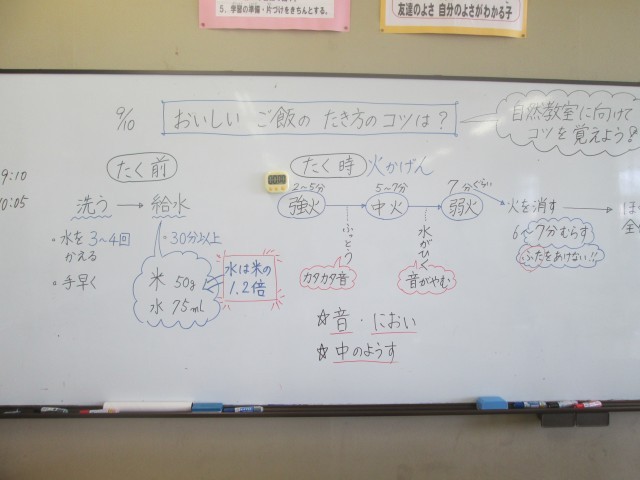 5. 学習の準備・片づけをきちんとする。
友達のよさ 自分のよさがわかる子
9/10
おいしい ご飯の たき方のコツは?
自然教室に向けて
コツを覚えよう!
9:10
0:05
たく前
洗う → 給水
・水を3~4回
かえる
・手早く
・30分以上
米 50g
水 75ml
水は米の
1.2倍
たく時 火かげん
2~5分
強火
5~7分
中火
7分ぐらい
弱火
火を消す
ふっとう
カタカタ音
水がひく
音がやむ
6~7分むらす
ふたをあけない!!
☆音・におい
☆中のようす
ほ
全